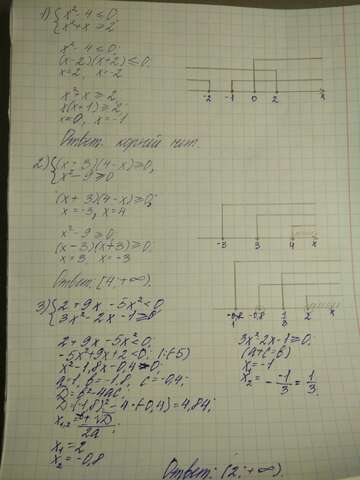 1) { x² - 4 ≤ 0;
{ x² + x ≥ 2
x² - 4 ≤ 0;
(x-2)(x+2) ≤ 0;
x=2, x=-2
-2 -1 0 2 x
x²+x ≥ 2
x(x+1) ≥ 2;
x=0, x=-1
Ответ: корней нет.
2) { (x+3)(4-x) ≥ 0;
{ x² - 9 ≥ 0
(x+3)(4-x) ≥ 0;
x=-3, x=4
-3 3 4 x
x² - 9 ≥ 0;
(x-3)(x+3) ≥ 0;
x=3 x=-3
Ответ: [4; +∞).
3) { 2 + 9x - 5x² < 0;
{ 3x² - 2x - 1 ≥ 0
2 + 9x - 5x² < 0;
-5x² + 9x + 2 < 0; |:(-5)
x² - 1,8x - 0,4 > 0;
a=1, b=-1,8, c=-0,4;
D = b² - 4ac
D=(-1,8)² - 4·(-0,4) = 4,84;
x₁,₂ = -b ± √D / 2a;
x₁ = 2
x₂ = -0,8
3x² - 2x - 1 ≥ 0;
(a+c=b)
x₁ = -1
x₂ = - -1/3 = 1/3.
Ответ: (2; +∞).